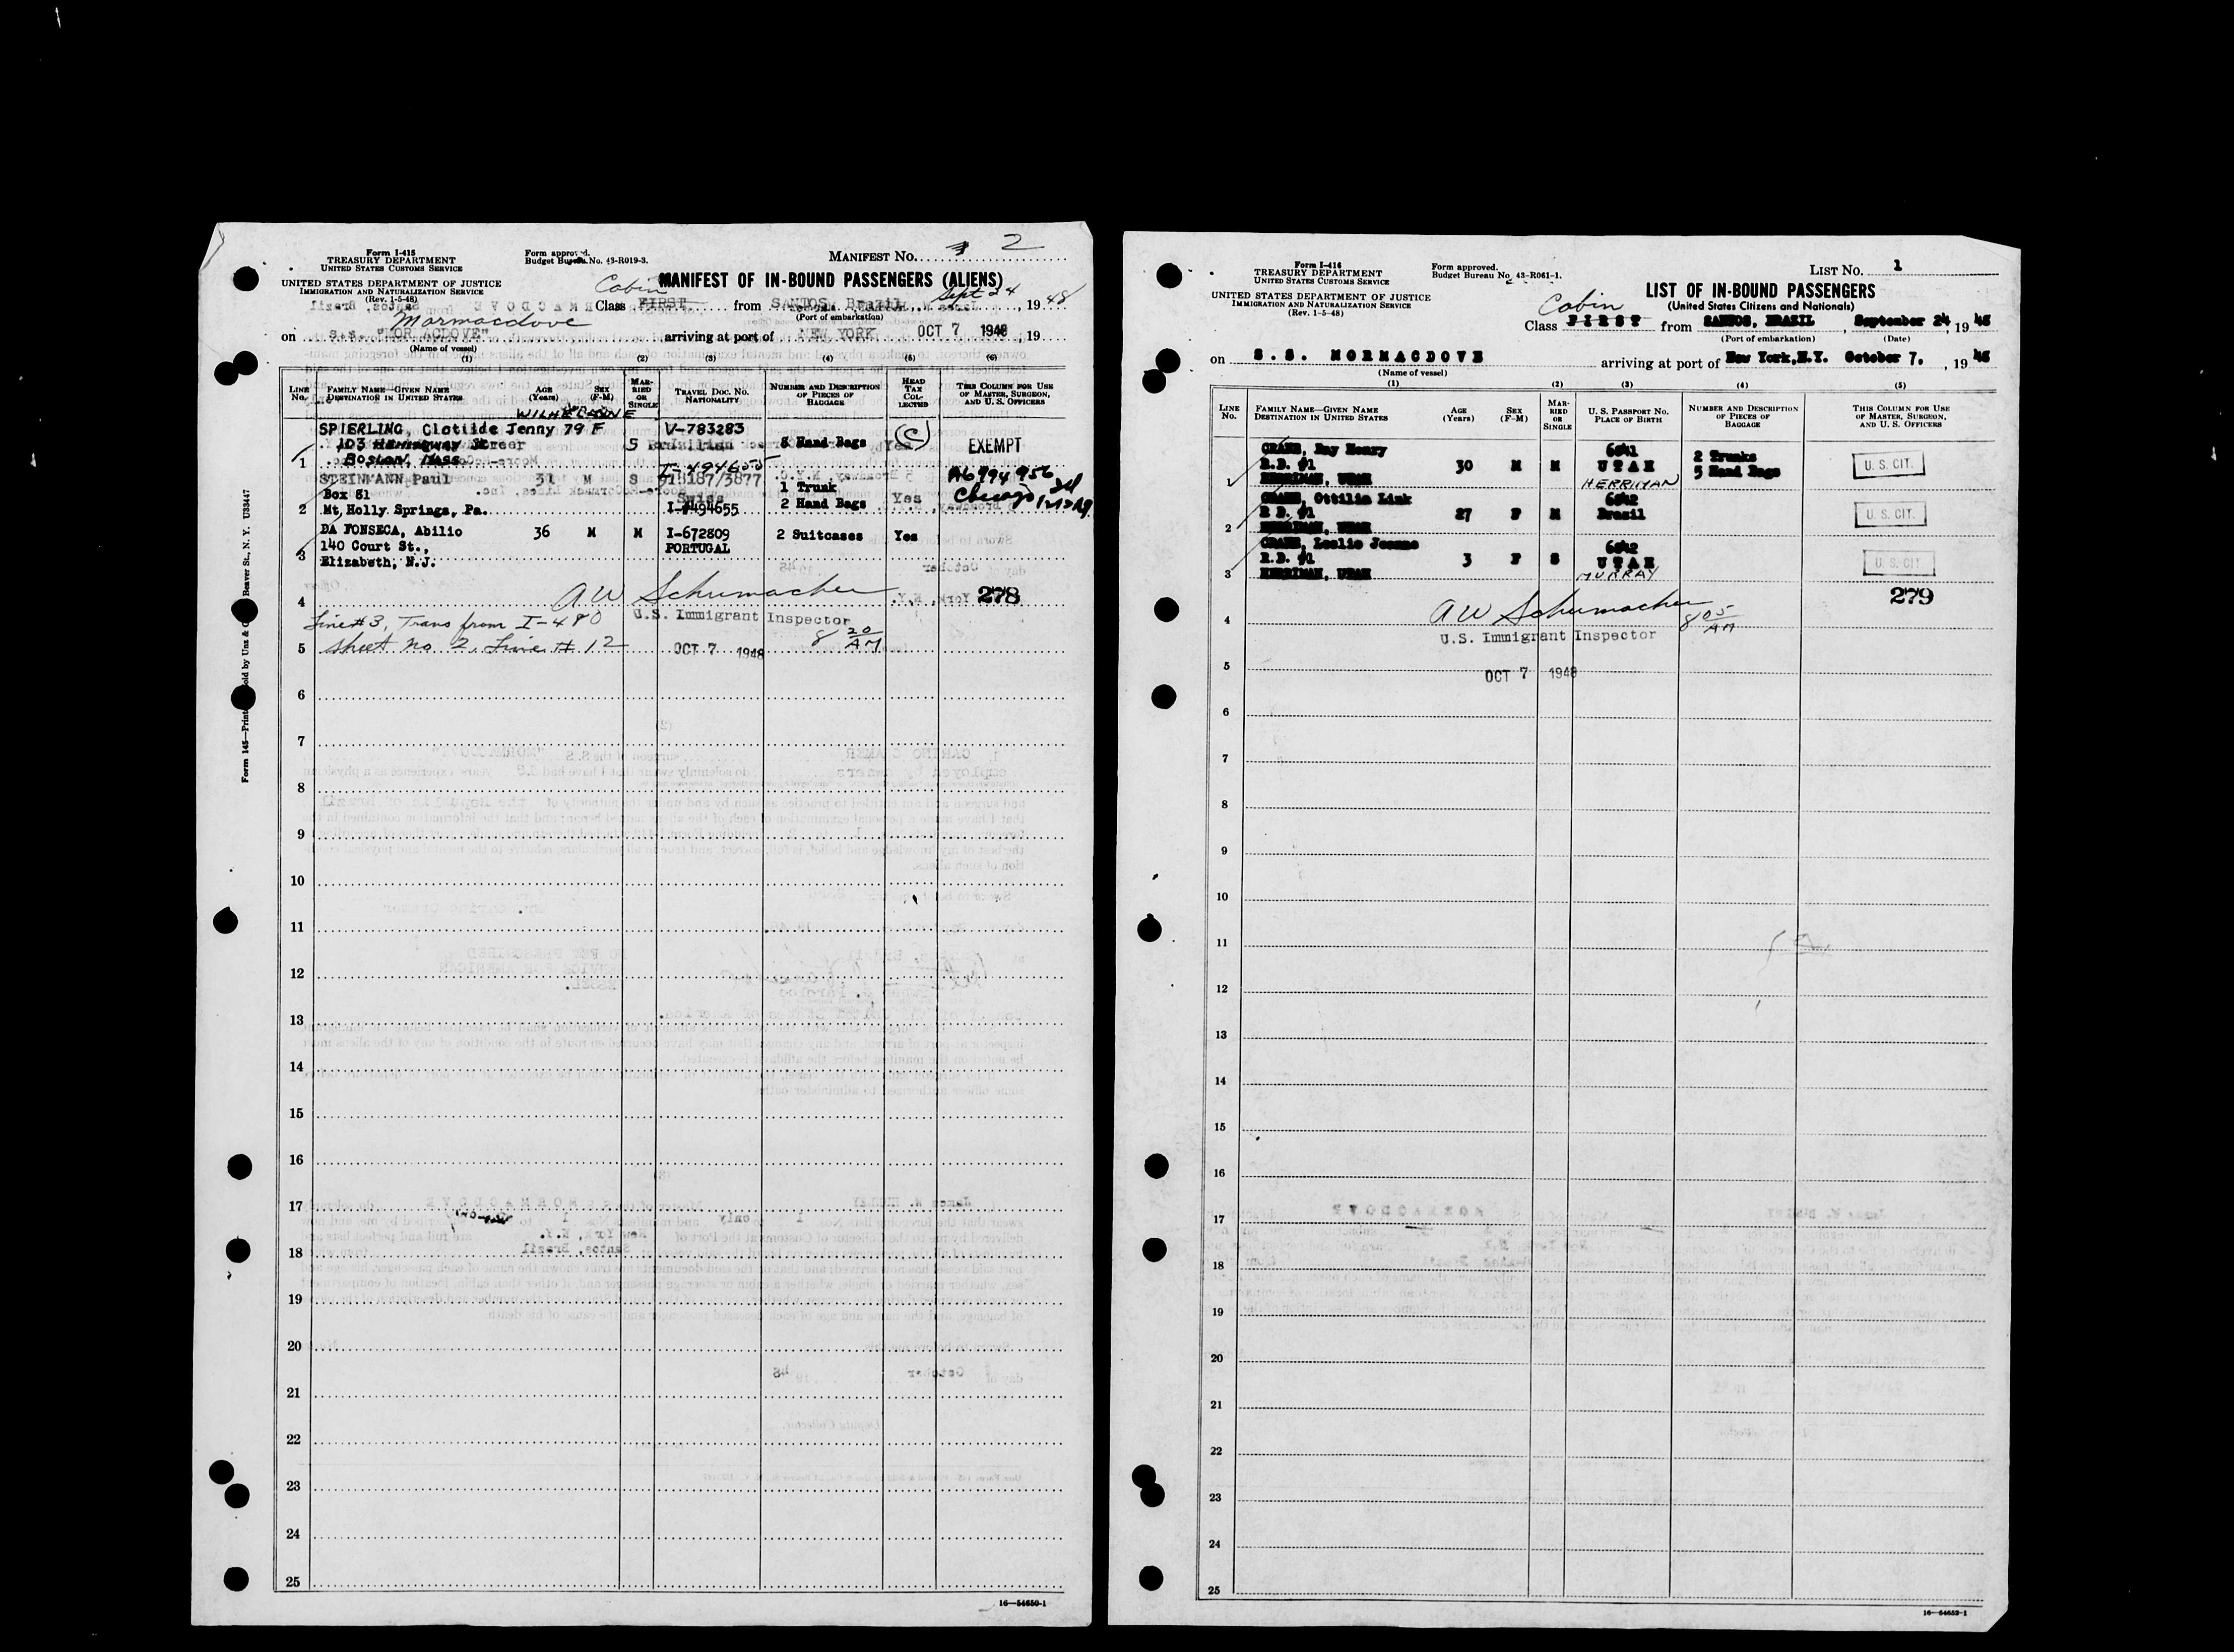 Form I-415
TREASURY DEPARTMENT
UNITED STATES CUSTOMS SERVICE
UNITED STATES DEPARTMENT OF JUSTICE
IMMIGRATION AND NATURALIZATION SERVICE
(Rev. 1-5-48)
Form approved.
Budget Bureau No. 43-R019-3.
MANIFEST No. 2
MANIFEST OF IN-BOUND PASSENGERS (ALIENS)
Cabin
Class FIRST from SANTOS, Brazil, Sept 24, 1948
(Port of embarkation)
Mormacdove
on S.S. "MOR ACDOVE" arriving at port of NEW YORK OCT 7 1948, 19
(Name of vessel)
(1) (2) (3) (4) (5) (6)
LINE No. FAMILY NAME—GIVEN NAME DESTINATION IN UNITED STATES AGE (Years) SEX (F-M) MARRIED OR SINGLE TRAVEL DOC. NO. NATIONALITY NUMBER AND DESCRIPTION OF PIECES OF BAGGAGE HEAD TAX COLLECTED THIS COLUMN FOR USE OF MASTER, SURGEON, AND U. S. OFFICERS
SPIERLING, Clotilde Jenny 79 F V-783283
103 Hemingway Street S Brazilian 8 Hand Bags (C) EXEMPT
1 Boston, Mass
I-494655
STEINMANN Paul 31 M S 918187/3877 1 Trunk A6794956
Box 81 Swiss 2 Hand Bags Yes Chicago Ill
2 Mt Holly Springs, Pa. I-494655
DA FONSECA, Abilio 36 M M I-672809 2 Suitcases Yes
3 140 Court St., PORTUGAL
Elizabeth, N.J.
4 AW Schumacher 278
U.S. Immigrant Inspector
Line #3, Trans from I-480 8 20 AM
5 sheet no 2, Line # 12 OCT 7 1948
6
7
8
9
10
11
12
13
14
15
16
17
18
19
20
21
22
23
24
25
16—54650-1
Form I-416
TREASURY DEPARTMENT
UNITED STATES CUSTOMS SERVICE
UNITED STATES DEPARTMENT OF JUSTICE
IMMIGRATION AND NATURALIZATION SERVICE
(Rev. 1-5-48)
Form approved.
Budget Bureau No. 43-R061-1.
LIST No. 1
LIST OF IN-BOUND PASSENGERS
(United States Citizens and Nationals)
Cabin
Class FIRST from SANTOS, BRASIL, September 24, 1948
(Port of embarkation) (Date)
on S.S. MORMACDOVE arriving at port of New York, N.Y. October 7, 1948
(Name of vessel)
(1) (2) (3) (4) (5)
LINE No. FAMILY NAME—GIVEN NAME DESTINATION IN UNITED STATES AGE (Years) SEX (F-M) MARRIED OR SINGLE U. S. PASSPORT NO. PLACE OF BIRTH NUMBER AND DESCRIPTION OF PIECES OF BAGGAGE THIS COLUMN FOR USE OF MASTER, SURGEON, AND U. S. OFFICERS
CRANE, Ray Henry 6841 2 Trunks
R.D. #1 30 M M UTAH 5 Hand Bags U. S. CIT.
1 HERRIMAN, UTAH HERRIMAN
CRANE, Ottilia Link 6842
R D. #1 27 F M Brasil U. S. CIT.
2 HERRIMAN, UTAH
CRANE, Leslie Joanne 6842
R.D. #1 3 F S UTAH U. S. CIT.
3 HERRIMAN, UTAH MURRAY
279
4 AW Schumacher 8 05 AM
U.S. Immigrant Inspector
5 OCT 7 1948
6
7
8
9
10
11
12
13
14
15
16
17
18
19
20
21
22
23
24
25
16—54652-1